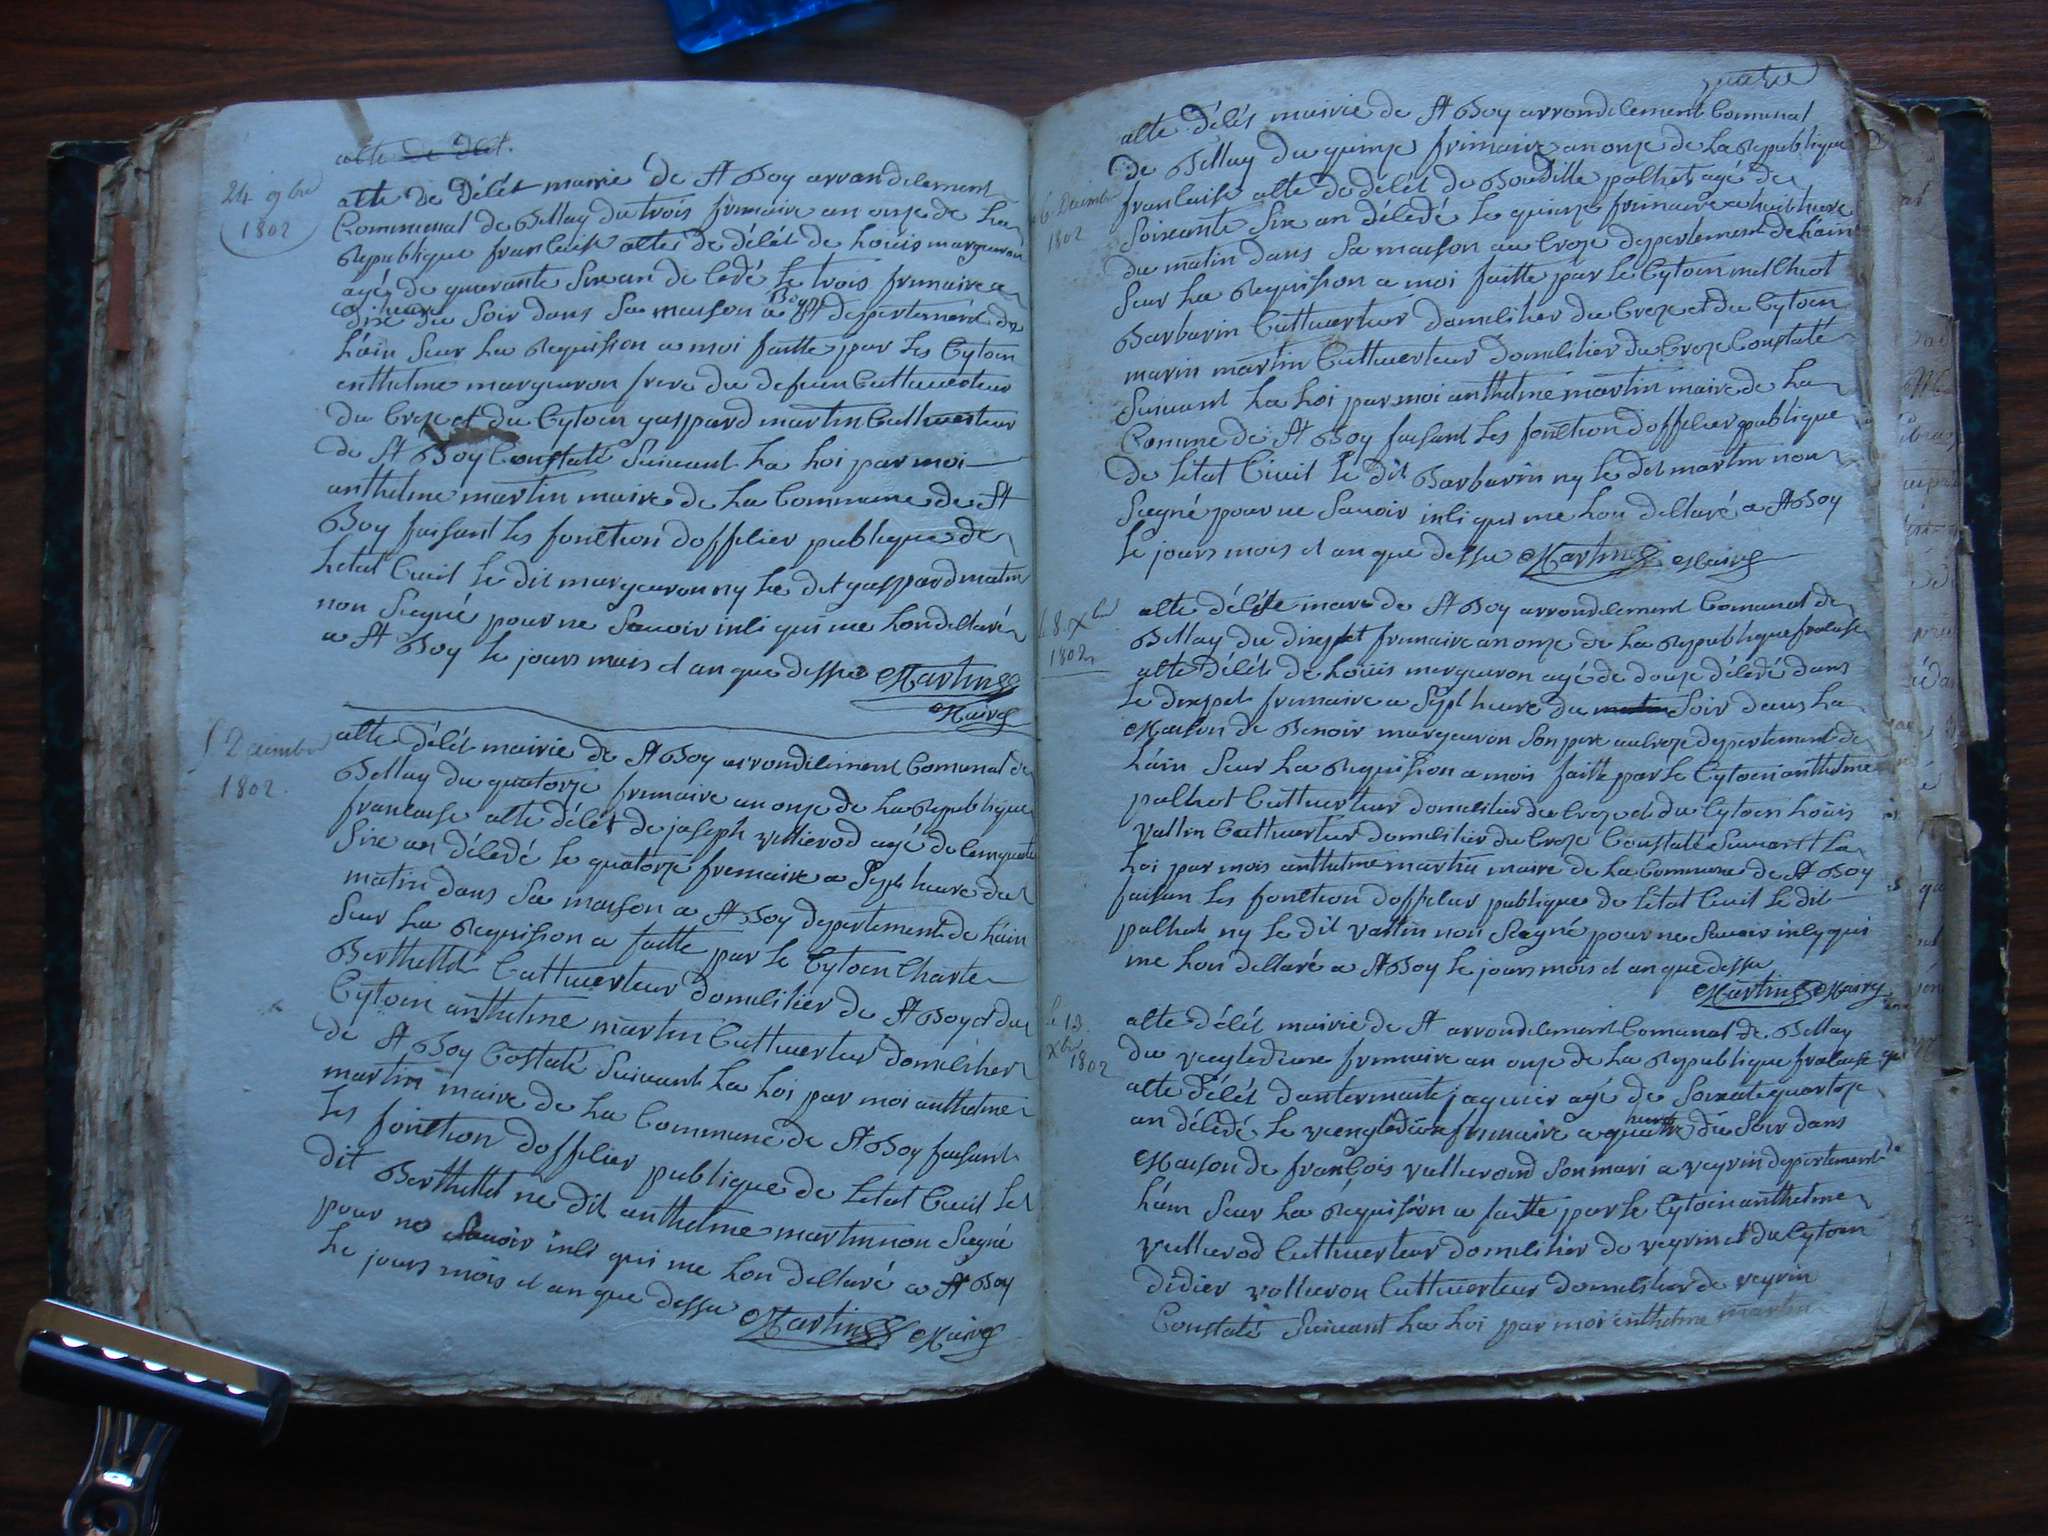 acte de dlét.
24 9bre
1802
acte de Délét mairie de St Boy arrondilement
Communal de Bellay du trois frimaire an onze de La
Republique francaise actes de délét de Louis margueron
agé de quarante six an de ledé le trois frimaire a
dix heure du Soir dans Sa maison a St Boy departement de
L'ain Sur La Requission a moi faitte par Les Cytoin
anthelme margueron frere du defuen Cultuverteur
du Croze et du Cytoin gaspard martin Cultuverteur
de St Boy Constaté Suivant La Loi par moi
anthelme martin maire de La Commune de St
Boy faisant les fonction dofficier publique de
Letat Civil le dit margueron ny le dit gaspard matin
non Siegné pour ne Savoir inli qui me Lon declaré
a St Boy le jours mois et an que dessue Martin
Maire
5 Decembre
1802.
acte délét mairie de St Boy arrondilement Comunal de
Bellay du quatorze frimaire an onze de La Republique
francaise acte délét de joseph vullierod agé de Cinquante
Six an délédé le quatorze fremaire a Sept heure du
matin dans Sa maison a St Boy departement de L'ain
Sur La Requission a faitte par le Cytoin Charle
Berthellet Cultuverteur domilier de St Boy et du
Cytoin anthelme martin Cultuverteur domilier
de St Boy Costaté Suivant La Loi par moi anthelme
martin maire de La Commune de St Boy faisant
les fonction dofficier publique de Letat Civil le
dit Berthellet ne dit anthelme martin non Siegné
pour ne Savoir inli qui me Lon declaré a St Boy
Le jours mois et an que dessu Martin Maire
quatre
6 Decembre
1802
acte délét mairie de St Boy arrondilement Comunal
de Bellay du quinze frimaire an onze de La Republique
francaise acte de délét de Boudille palhet agé de
Soixante Six an délédé le quinze frimaire a huit heure
du matin dans Sa maison au Croze departement de Lain
Sur La Requission a moi faitte par le Cytoin melchiot
Barbarin Cultuverteur domilier du Croze et du Cytoin
marin martin Cultuverteur domilier du Croze Constaté
Suivant La Loi par moi anthelme martin maire de La
Comine de St Boy faisant les fonction dofficier publique
de Letat Civil le dit Barbarin ny le dit martin non
Siegné pour ne Savoir inli qui me Lon declaré a St Boy
le jours mois et an que dessu Martin Maire
le 8 Xbre
1802
acte délét mare de St Boy arrondilement Comunal de
Bellay du dixset frimaire an onze de La Republique fracaise
acte délét de Louis margueron agé de douze délédé dans
le dixset frimaire a Sept heure du matin Soir dans La
Maison de Benoir margueron Son pere au Croze departement de
L'ain Sur La Requission a mois faitte par le Cytoin anthelme
palhet Cultuverteur domilier du Croze et du Cytoin Louis
Vallin Cultuverteur domilier du Croze Constaté Suivant La
Loi par mois anthelme martin maire de La Commune de St Boy
faisan les fonction dofficier publique de Letat Civil le dit
palhet ny le dit Vallin non Siegné pour ne Savoir inly qui
me Lon declaré a St Boy le jours mois et an que dessu
Martin Maire
le 13
Xbre
1802
acte délét mairie de St arrondilement Comunal de Bellay
du vengtedeuxe frimaire an onze de La Republique fracaise
acte délét dantermaite jaquier agé de Soixate quartoze
an délédé le vengtedeuxe frimaire a quatre heure du Soir dans
Maison de francois vulleroud Son mari a veyrin departement de
L'ain Sur La Requisision a faitte par le Cytoin anthelme
vullerod Cultuverteur domilier de veyrin et du Cytoin
didier volleron Cultuverteur domilier de veyrin
Constaté Suivant La Loi par moi anthelme martin